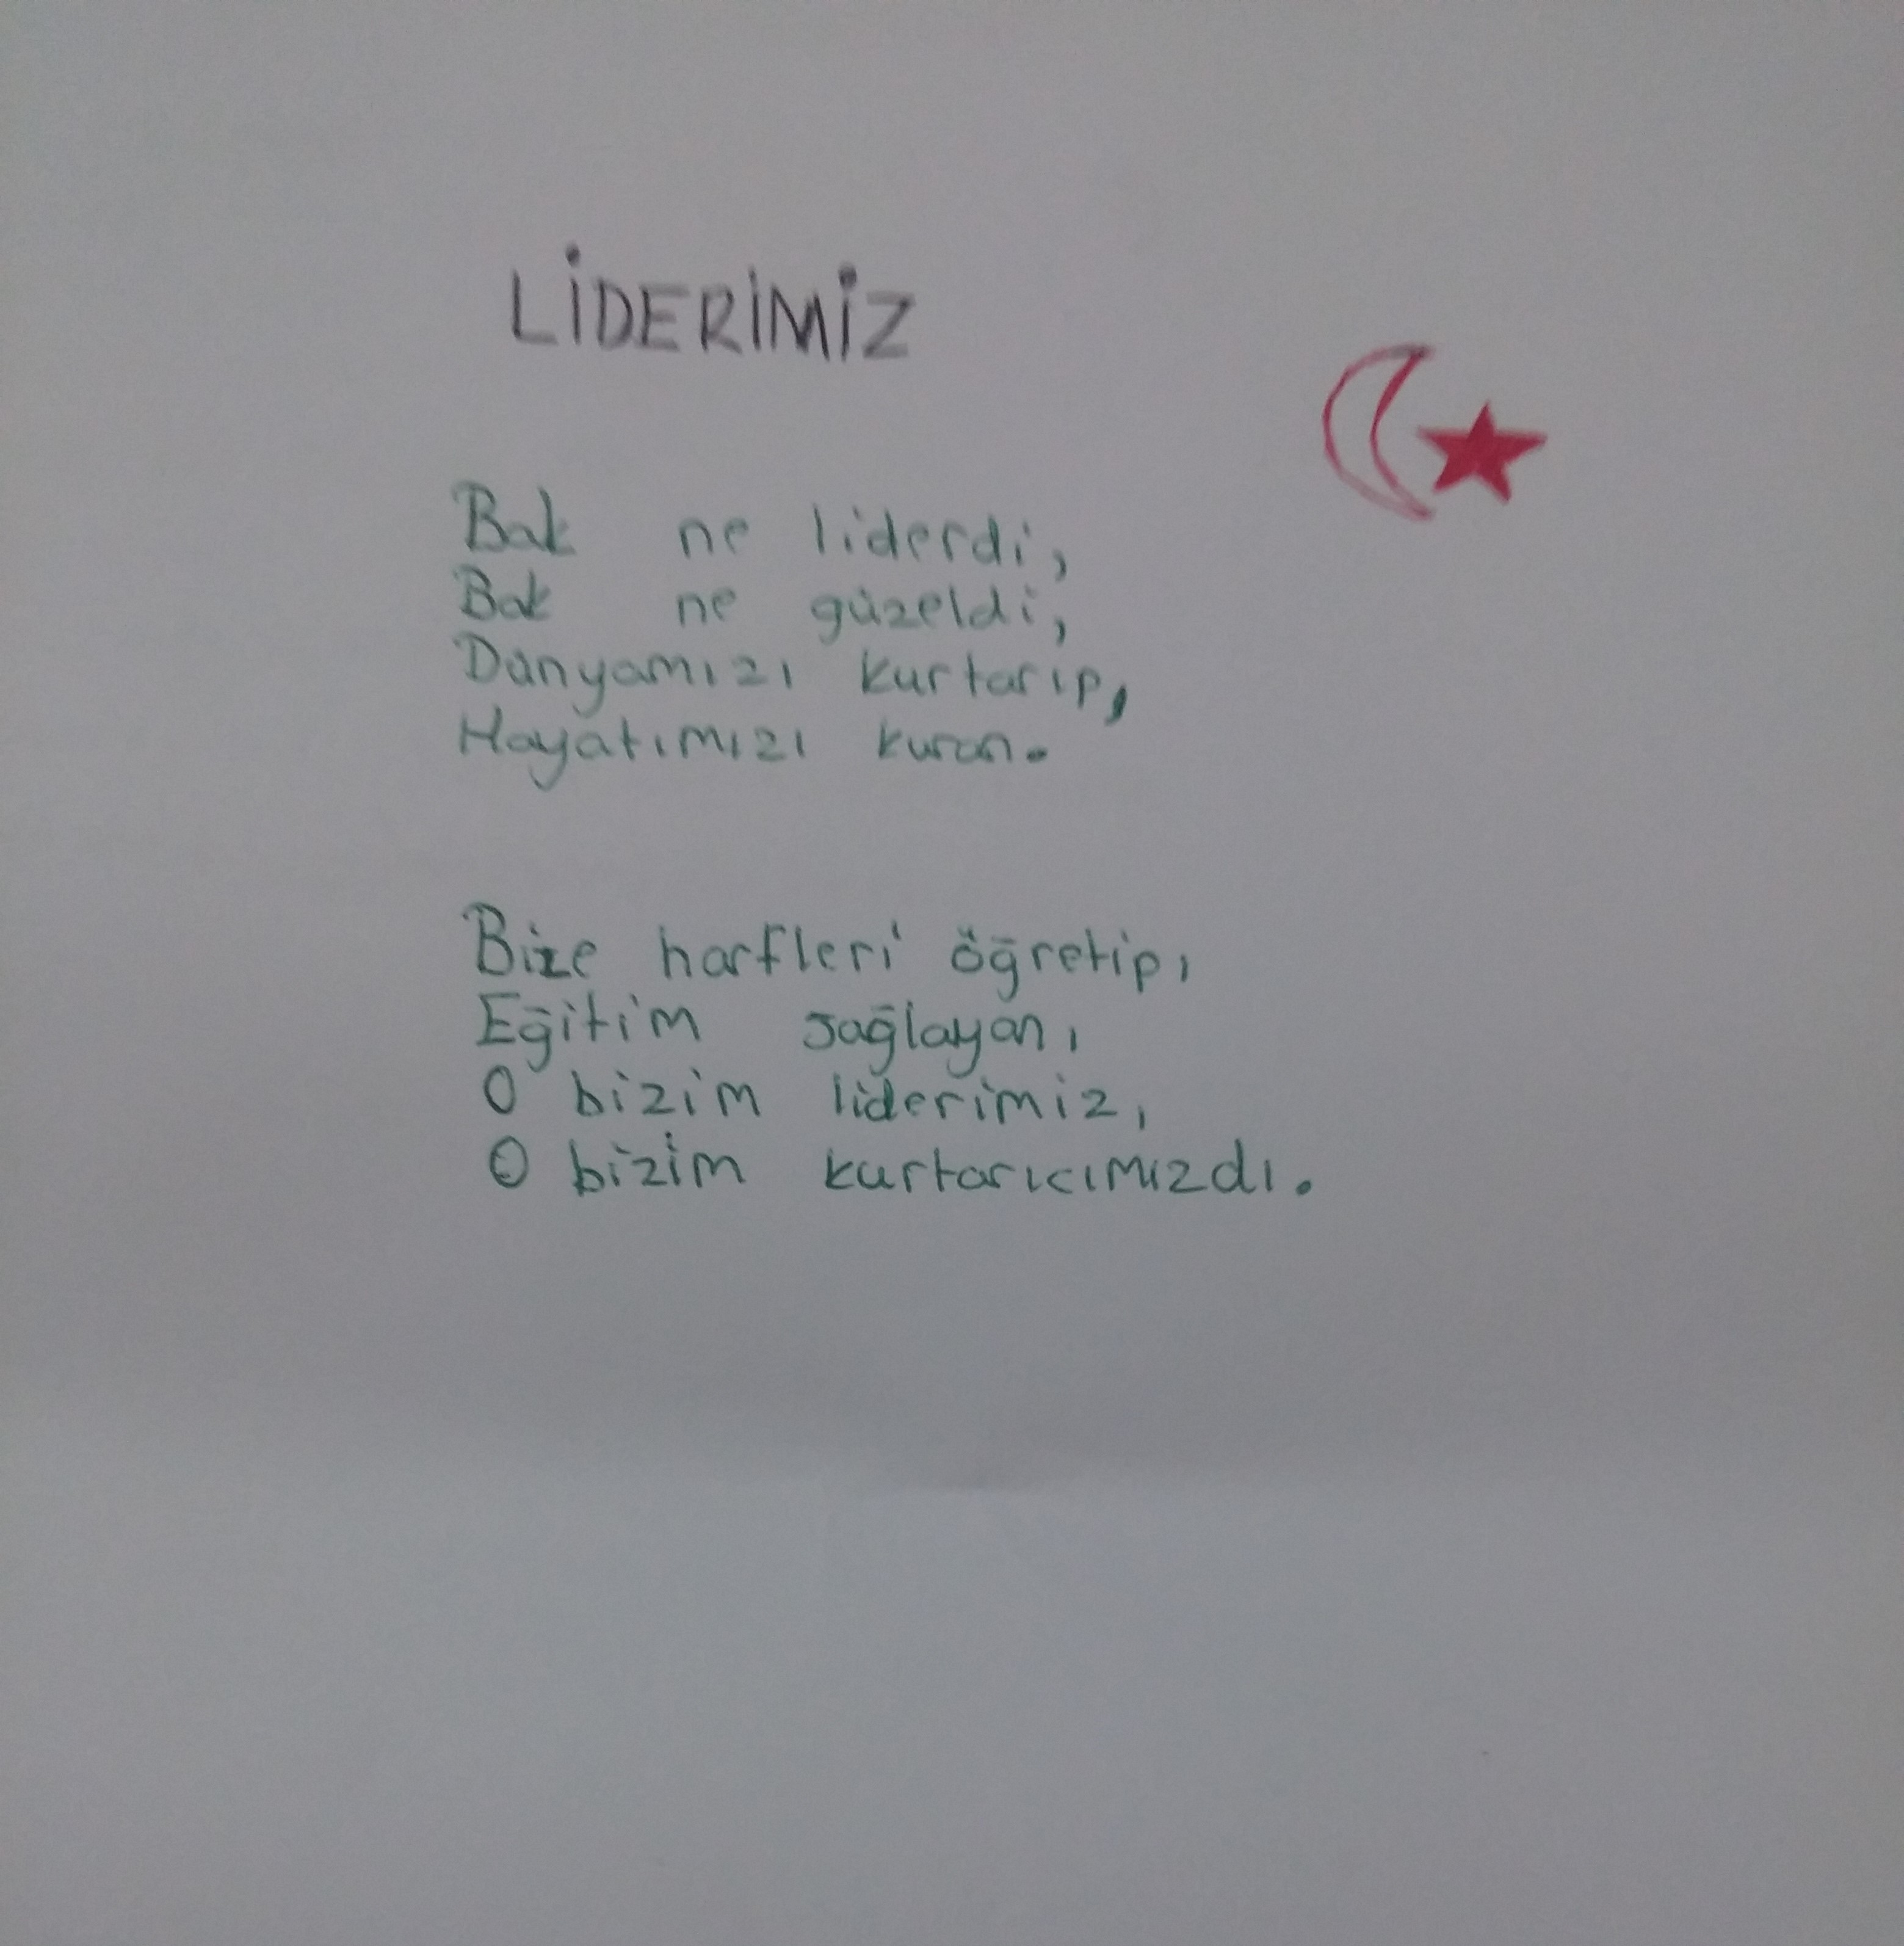 LİDERİMİZ
Bak ne liderdi,
Bak ne güzeldi,
Dünyamızı kurtarıp,
Hayatımızı kuran.
Bize harfleri öğretip,
Eğitim sağlayan,
O bizim liderimiz,
O bizim kurtarıcımızdı.